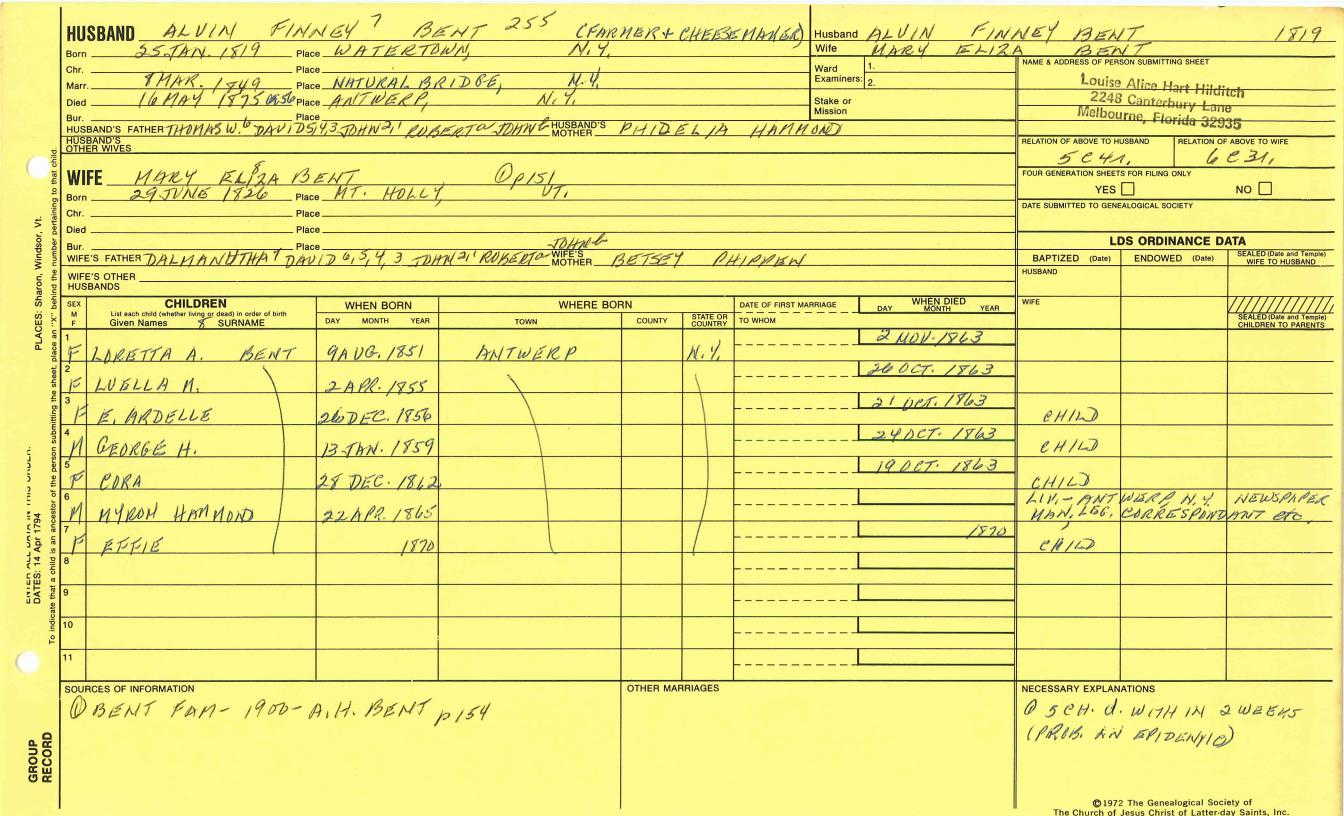 HUSBAND ALVIN FINNEY 7 BENT 255 (FARMER + CHEESEMAKER)
Born 25 JAN. 1819 Place WATERTOWN, N.Y.
Chr. Place
Marr. 8 MAR. 1849 Place NATURAL BRIDGE, N.Y.
Died 16 MAY 1875 Place ANTWERP, N.Y.
Bur. Place
HUSBAND'S FATHER THOMAS W. 6 DAVID 5,4,3 JOHN 2,1 ROBERT a JOHN b HUSBAND'S MOTHER PHIDELIA HAMMOND
HUSBAND'S OTHER WIVES
WIFE MARY ELIZA 8 BENT ① p151
Born 29 JUNE 1826 Place MT. HOLLY, VT.
Chr. Place
Died Place
Bur. Place JOHN b
WIFE'S FATHER DALMANUTHA 7 DAVID 6,5,4,3 JOHN 2,1 ROBERT a WIFE'S MOTHER BETSEY PHIPPEN
WIFE'S OTHER HUSBANDS
Husband ALVIN FINNEY BENT 1819
Wife MARY ELIZA BENT
Ward Examiners: 1.
2.
Stake or Mission
NAME & ADDRESS OF PERSON SUBMITTING SHEET
Louise Alice Hart Hilditch
2248 Canterbury Lane
Melbourne, Florida 32935
RELATION OF ABOVE TO HUSBAND RELATION OF ABOVE TO WIFE
5 C 4 r. 6 C 3 r.
FOUR GENERATION SHEETS FOR FILING ONLY
YES NO
DATE SUBMITTED TO GENEALOGICAL SOCIETY
LDS ORDINANCE DATA
BAPTIZED (Date) ENDOWED (Date) SEALED (Date and Temple) WIFE TO HUSBAND
HUSBAND
WIFE
SEALED (Date and Temple) CHILDREN TO PARENTS
SEX M F CHILDREN WHEN BORN WHERE BORN DATE OF FIRST MARRIAGE WHEN DIED
List each child (whether living or dead) in order of birth
Given Names 8 SURNAME DAY MONTH YEAR TOWN COUNTY STATE OR COUNTRY TO WHOM DAY MONTH YEAR
1 F LORETTA A. BENT 9 AUG. 1851 ANTWERP N.Y. 2 NOV. 1863
2 F LUELLA M. 2 APR. 1855 26 OCT. 1863
3 F E. ARDELLE 26 DEC. 1856 21 OCT. 1863 CHILD
4 M GEORGE H. 13 JAN. 1859 24 OCT. 1863 CHILD
5 F CORA 28 DEC. 1862 19 OCT. 1863 CHILD
6 M MYRON HAMMOND 22 APR. 1865 LIV. - ANTWERP, N.Y. NEWSPAPER
MAN, LEG. CORRESPONDANT etc.
7 F EFFIE 1870 1870 CHILD
8
9
10
11
SOURCES OF INFORMATION
① BENT FAM - 1900 - A.H. BENT p154
OTHER MARRIAGES
NECESSARY EXPLANATIONS
① 5 CH. d. WITH IN 2 WEEKS
(PROB. AN EPIDEMIC)
©1972 The Genealogical Society of
The Church of Jesus Christ of Latter-day Saints, Inc.
PLACES: Sharon, Windsor, Vt.
ENTER ALL DATA IN THIS ORDER:
DATES: 14 Apr 1794
To indicate that a child is an ancestor of the person submitting the sheet, place an "X" behind the number pertaining to that child.
GROUP RECORD